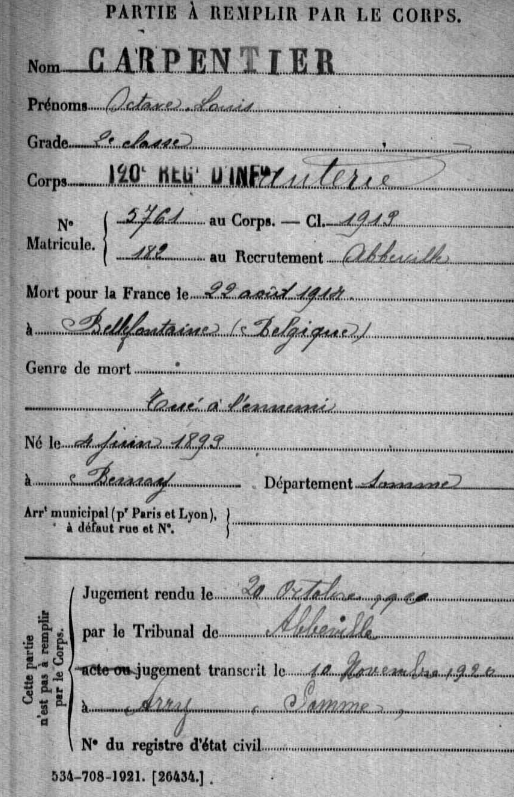 PARTIE À REMPLIR PAR LE CORPS.
Nom CARPENTIER
Prénoms Octave Louis
Grade 2e classe
Corps 120e REGt D'INFanterie
N° Matricule. 5761 au Corps. — Cl. 1913
182 au Recrutement Abbeville
Mort pour la France le 22 août 1914
à Bellefontaine (Belgique)
Genre de mort
Tué à l'ennemi
Né le 4 juin 1893
à Bernay Département Somme
Arrt municipal (pr Paris et Lyon),
à défaut rue et N°.
Cette partie n'est pas à remplir par le Corps.
Jugement rendu le 20 Octobre 1920
par le Tribunal de Abbeville
acte ou jugement transcrit le 10 Novembre 1920
à Arry Somme
N° du registre d'état civil
534-708-1921. [26434.]